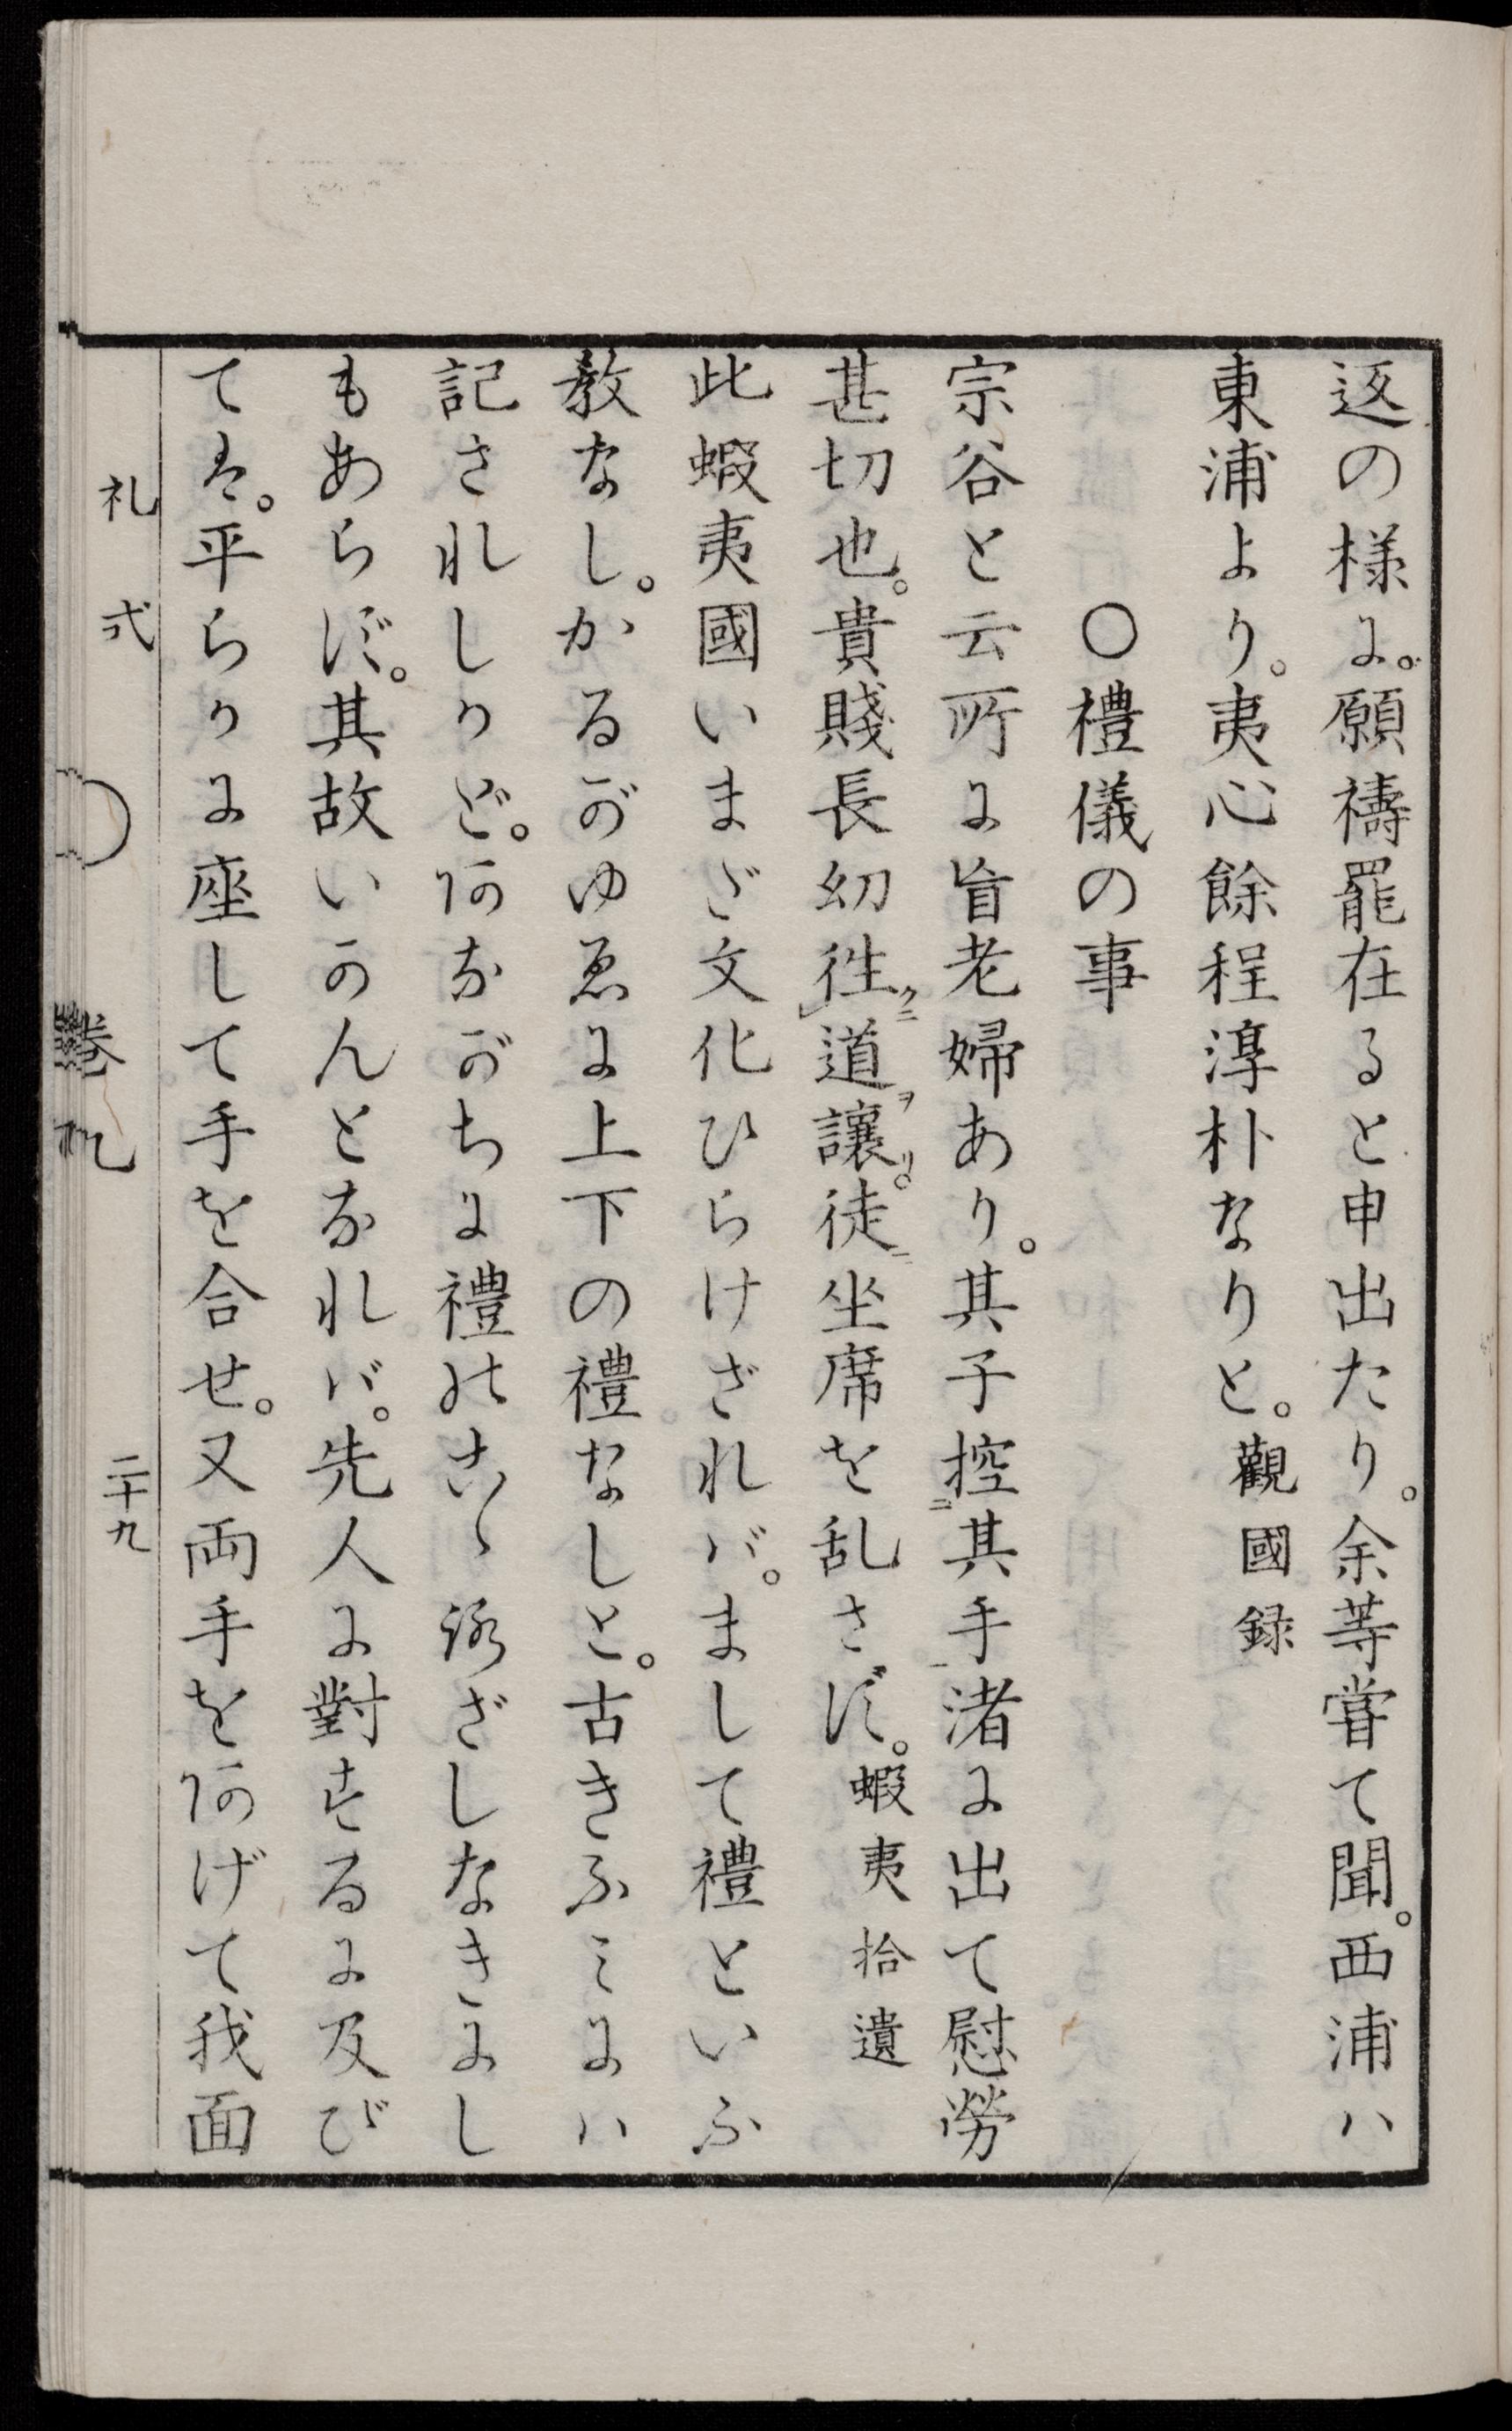 返の様に。願禱罷在ると申出たり。余等嘗て聞。西浦ハ
東浦より。夷心餘程淳朴なりと。觀國録
〇禮儀の事
宗谷と云所に盲老婦あり。其子控ニ其手一渚に出て慰勞
甚切也。貴賤長幼徃クニ道ヲ讓リ。徒ニ坐席を乱さず。蝦夷拾遺
此蝦夷國いまだ文化ひらけざれバ。まして禮といふ
教なし。かるがゆゑに上下の禮なしと。古きふミにハ
記されしかど。あながちに禮のこゝろざしなきにし
もあらず。其故いかんとなれバ。先人に對するに及び
てハ。平らかに座して手を合せ。又両手をあげて我面
礼式 卷九 二十九